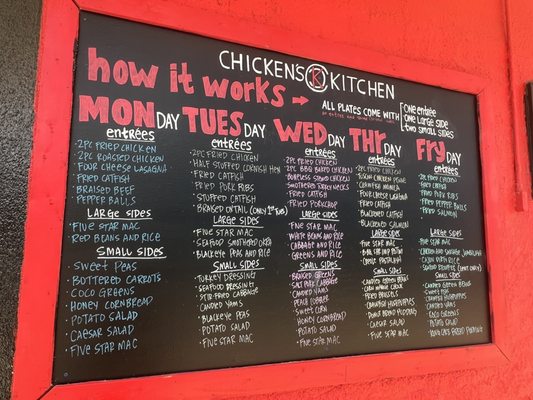 CHICKEN'S K KITCHEN
how it works →
ALL PLATES COME WITH
one entrée
one large side
two small sides
MONDAY
entrées
2pc fried chicken
2pc roasted chicken
four cheese lasagna
fried catfish
braised beef
pepper balls
large sides
five star mac
red beans and rice
small sides
sweet peas
buttered carrots
coco greens
honey cornbread
potato salad
caesar salad
five star mac
TUESDAY
entrées
2pc fried chicken
half stuffed cornish hen
fried catfish
fried pork ribs
stuffed catfish
braised oxtail (only 1st tues)
large sides
five star mac
seafood smothered okra
blackeye peas and rice
small sides
turkey dressing
seafood dressing
stir-fried cabbage
candied yams
blackeye peas
potato salad
five star mac
WEDDAY
entrées
2pc fried chicken
2pc bbq baked chicken
boneless stewed chicken
smothered turkey necks
fried catfish
fried porkchop
large sides
five star mac
white beans and rice
cabbage and rice
greens and rice
small sides
braised greens
salt pork cabbage
candied yams
peach cobbler
sweet corn
honey cornbread
potato salad
five star mac
THRDAY
entrées
2pc fried chicken
fried catfish
blackened catfish
blackened salmon
large sides
five star mac
small sides
candied green beans
fried broccoli
crawfish hushpuppies
caesar salad
five star mac
FRYDAY
entrées
2pc fried chicken
fried catfish
fried pork ribs
fried pepper balls
fried salmon
large side
five star mac
chicken and sausage jambalaya
cajun dirty rice
small sides
candied green beans
sweet peas
crawfish hushpuppies
candied yams
coco greens
potato salad